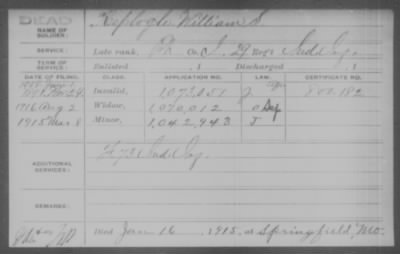 DEAD
NAME OF SOLDIER: Replogle, William S.
SERVICE: Late rank, Pvt Co. I, 29 Reg't Ind Inf.
TERM OF SERVICE: Enlisted , 1 Discharged , 1
DATE OF FILING. CLASS. APPLICATION NO. LAW. CERTIFICATE NO.
Invalid, 1,073,051 J 800.182
1916 Aug 2 Widow, 1,070,012
1915 Mar 8 Minor, 1,042,943 J
ADDITIONAL SERVICES: F 73 Ind Inf.
REMARKS:
Died Jan 16, 1915, at Springfield, Mo.